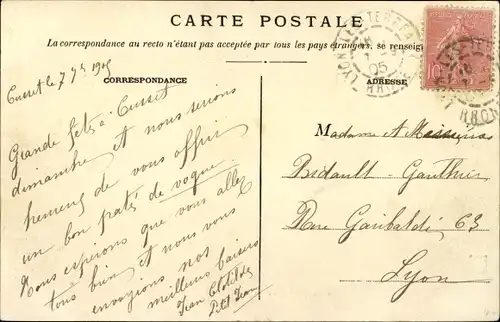 CARTE POSTALE
La correspondance au recto n'étant pas acceptée par tous les pays étrangers, se renseig
CORRESPONDANCE
ADRESSE
LYON LES TERREAUX
05
RHONE
10
Cusset le 7 1905
Grande fête à Cusset
dimanche et nous serions
heureux de vous offrir
un bon pâté de vogue.
Nous espérons que vous allez
tous bien et nous vous
envoyons nos
meilleurs baisers
Jean Clotilde
Petit Jean
Madame et Messieurs
Bidault-Gauthier
Rue Garibaldi 63
Lyon